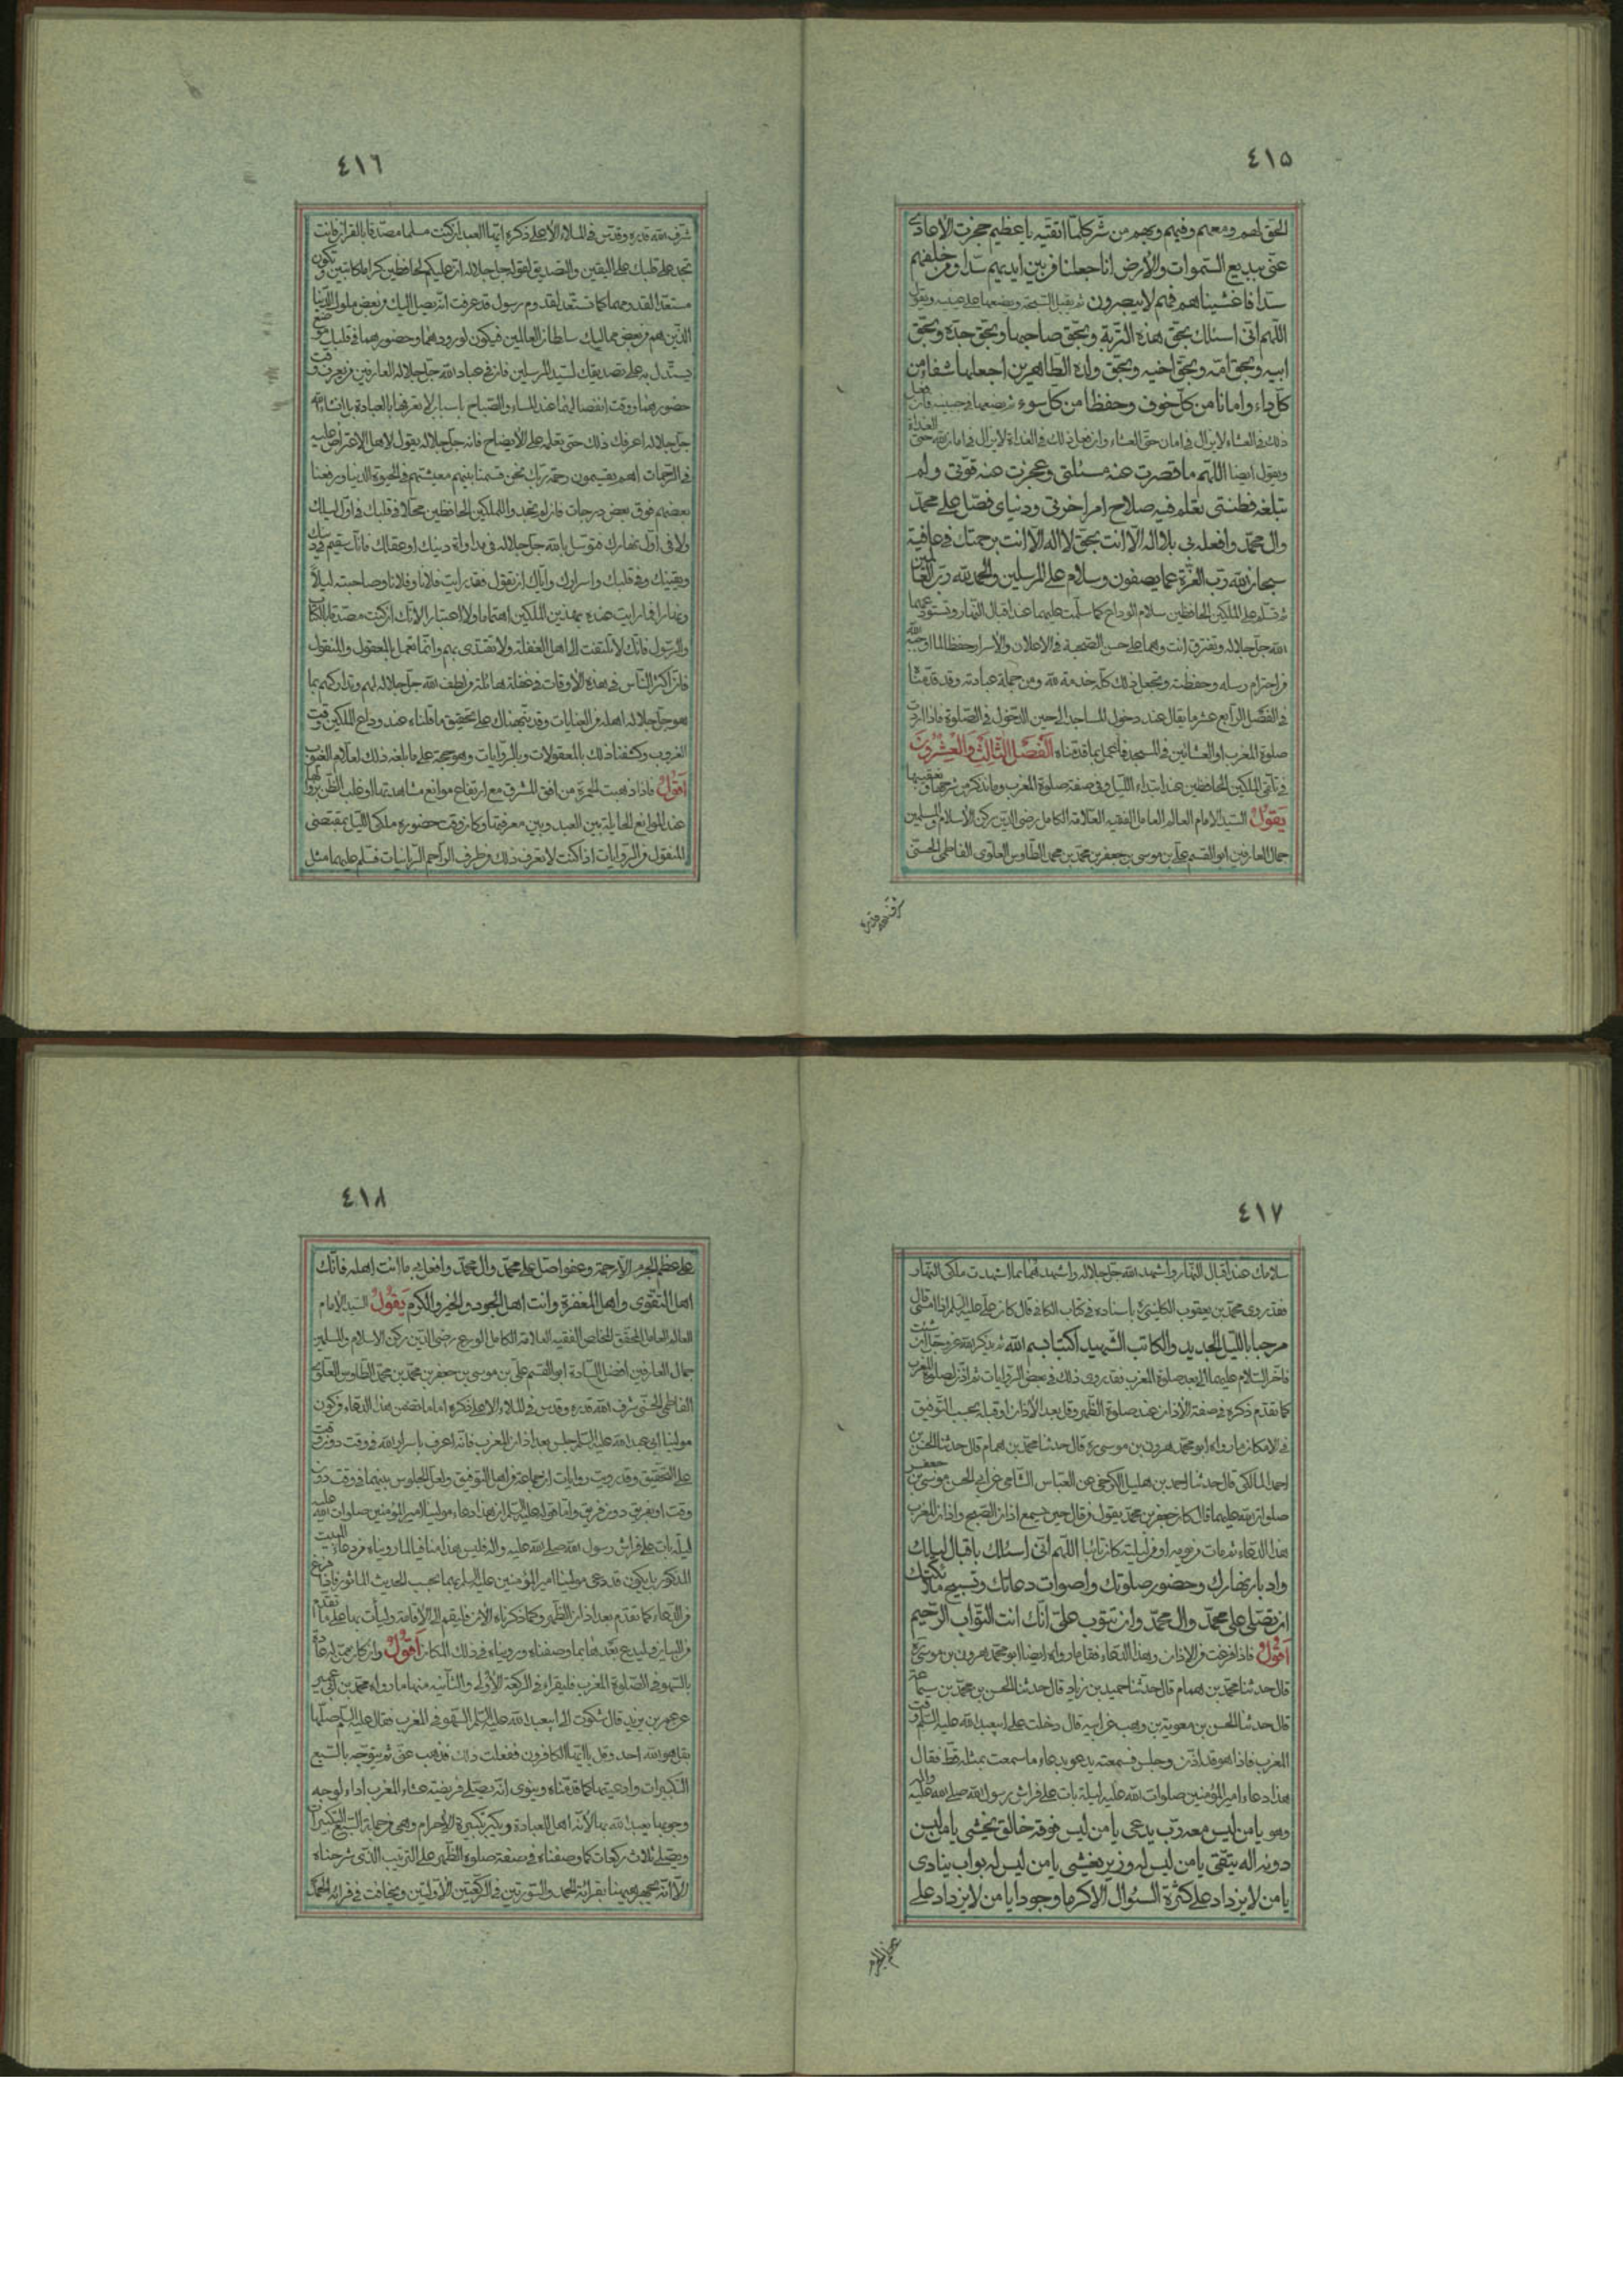 ٤١٥
الحق لهم ومعهم وفيهم وبهم من شر كلما اتقيه يا عظيم حجزت الأعادي
عني ببديع السموات والأرض انا جعلنا من بين ايديهم سدا ومن خلفهم
سدا فاغشيناهم فهم لا يبصرون ثم يقبل السبحة ويضعها على عينيه ويقول
اللهم اني اسئلك بحق هذه التربة وبحق صاحبها وبحق جده وبحق
ابيه وبحق امه وبحق اخيه وبحق ولده الطاهرين اجعلها شفاء من
كل داء وامانا من كل خوف وحفظا من كل سوء ثم يضعها في جبينه فان فعل
ذلك في العشاء لا يزال في امان حتى العشاء وان فعل ذلك في الغداة لا يزال في امان الله حتى الغداة
ويقول ايضا اللهم ما قصرت عنه مسئلتي وعجزت عنه قوتي ولم
تبلغه فطنتي تعلم فيه صلاح امر اخرتي ودنياي فصل على محمد
وال محمد وافعله بي بلا اله الا انت بحق لا اله الا انت برحمتك في عافية
سبحان الله رب العزة عما يصفون وسلام على المرسلين والحمد لله رب العالمين
ثم تسلم على الملكين الحافظين سلام الوداع كما سلمت عليهما عند اقبال النهار وتستودعهما
الله جل جلاله وتفترق انت وهما على حسن الصحبة في الاعلان والأسرار حفظا لما اوجبه الله
من احترام رسله وحفظته وتجعل ذلك كله خدمة لله ومن جملة عبادته وقد قدمنا
في الفصل الرابع عشر ما يقال عند دخول المساجد الى حين الدخول في الصلوة فاذا اردت
صلوة المغرب او العشائين في المسجد فاعمل بما قدمناه الفصل الثالث والعشرون
في تلقي الملكين الحافظين عند ابتداء الليل وفي صفة صلوة المغرب وما نذكر من شرحها وتعقيبها
يقول السيد الامام العالم العامل الفقيه العلامة الكامل رضي الدين ركن الأسلام والمسلمين
جمال العارفين ابو القسم علي بن موسى بن جعفر بن محمد بن محمد الطاوس العلوي الفاطمي الحسني
شرف الله قدره
٤١٦
شرف الله قدره وقدس في الملاء الأعلى ذكره ايها العبد ان كنت مسلما مصدقا بالقران فانت
تجد على قلبك على اليقين والتصديق لقوله جل جلاله ان عليكم لحافظين كراما كاتبين وتكون
مستعدا لقدومهما كما تستعد لقدوم رسول قد عرفت انه يصل اليك من بعض ملوك الدنيا
الذين هم من بعض مماليك سلطان العالمين فيكون لورودهما وحضورهما في قلبك موضع
يستدل به على تصديقك لسيد المرسلين فان في عباد الله جل جلاله العارفين من يعرف وقت
حضورهما ووقت انفصالهما عند المساء والصباح باسباب لا نعرفها بالعبادة بل ان شاء الله
جل جلاله اعرفك ذلك حتى تعلمه على الأيضاح فانه جل جلاله يقول لاهل الاعتراض عليه
في الرحمات اهم يقسمون رحمة ربك نحن قسمنا بينهم معيشتهم في الحيوة الدنيا ورفعنا
بعضهم فوق بعض درجات فان لم تجد والله للملكين الحافظين محلا في قلبك في اول ليلك
ولا في اول نهارك فتوسل بالله جل جلاله في مداواة دينك او عقلك فانك سقيم في دينك
ويقينك وفي قلبك واسرارك واياك ان تقول فقد رايت فلانا وفلانا وصاحبته ليلا
ونهارا فما رايت عنده بهذين الملكين اهتماما ولا اعتبارا لانك ان كنت مصدقا بالكتاب
والرسول فانك لا تلتفت الى اهل الغفلة ولا تقتدي بهم وانما تعمل بالمعقول والمنقول
فان اكثر الناس في هذه الأوقات في غفلة هائلة من لطف الله جل جلاله لهم وتداركهم بما
هو جل جلاله اهله من العنايات وقد نبهناك على تحقيق ما قلناه عند وداع الملكين وقت
الغروب وكشفنا ذلك بالمعقولات وبالروايات وهو حجة على ما بلغه ذلك اعلام الغيوب
أقول فاذا ذهبت الحمرة من افق المشرق مع ارتفاع موانع مشاهدتها او غلب الظن بزوالها
عند الموانع الحايلة بين العبد وبين معرفتها وكان وقت حضوره ملكي الليل بمقتضى
المنقول من الروايات اذا كنت لا تعرف ذلك من طرف المراحم الربانيات فسلم عليهما مثل
٤١٧
سلامك عند اقبال النهار واشهد الله جل جلاله واشهدهما بما اشهدت ملكي النهار
فقد روى محمد بن يعقوب الكليني ره باسناده في كتاب الكافي قال كان علي عليه السلم اذا امسى قال
مرحبا بالليل الجديد والكاتب الشهيد اكتبا بسم الله ثم يذكر الله عز وجل وان شئت
فاخر السلام عليهما الى بعد صلوة المغرب فقد روي ذلك في بعض الروايات ثم اذن لصلوة المغرب
كما تقدم ذكره في صفة الأذان عند صلوة الظهر وقل بعد الأذان او قبله بحسب التوفيق
في الامكان ما رواه ابو محمد هرون بن موسى ره قال حدثنا محمد بن همام قال حدثنا الحسن بن
احمد المالكي قال حدثنا احمد بن هليل الكرخي عن العباس الشامي عن ابي الحسن موسى بن جعفر
صلوات الله عليهما قال كان جعفر بن محمد يقول من قال حين يسمع اذان الصبح واذان المغرب
هذا الدعاء ثم مات من يومه او من ليلته كان تائبا اللهم اني اسئلك باقبال ليلك
وادبار نهارك وحضور صلوتك واصوات دعاتك وتسبيح ملائكتك
ان تصلي على محمد وال محمد وان تتوب علي انك انت التواب الرحيم
أقول فاذا فرغت من الاذان وبهذا الدعاء فقل ما رواه ايضا ابو محمد هرون بن موسى ره
قال حدثنا محمد بن همام قال حدثنا حميد بن زياد قال حدثنا الحسن بن محمد بن سماعة
قال حدثنا الحسن بن معوية بن وهب عن ابيه قال دخلت على ابي عبد الله عليه السلم وقت
المغرب فاذا هو قد اذن وجلس فسمعته يدعو بدعاء ما سمعت بمثله قط فقال
هذا دعاء امير المؤمنين صلوات الله عليه ليلة بات على فراش رسول الله صلى الله عليه واله
وهو يا من ليس معه رب يدعى يا من ليس فوقه خالق يخشى يا من ليس
دونه اله يتقى يا من ليس له وزير يغشى يا من ليس له بواب ينادى
يا من لا يزداد على كثرة السؤال الا كرما وجودا يا من لا يزداد على
عظم الجرم
٤١٨
على عظم الجرم الا رحمة وعفوا صل على محمد وال محمد وافعل بي ما انت اهله فانك
اهل التقوى واهل المغفرة وانت اهل الجود والخير والكرم يقول السيد الأمام
العالم العامل المحقق المخلص الفقيه العلامة الكامل الورع رضي الدين ركن الاسلام والمسلمين
جمال العارفين افضل السادة ابو القسم علي بن موسى بن جعفر بن محمد بن محمد الطاوس العلوي
الفاطمي الحسني شرف الله قدره وقدس في الملاء الاعلى ذكره اما ما تضمن هذا الدعاء من كون
مولينا ابي عبد الله عليه السلم جلس بعد اذان المغرب فانه اعرف باسرار الله في وقت دون وقت
على التحقيق وقد رويت روايات ان جماعة من اهل التوفيق ولعل الجلوس بينهما في وقت دون
وقت او لفريق دون فريق واما قوله عليه السلم ان هذا دعاء مولينا امير المؤمنين صلوات الله عليه
ليلة بات على فراش رسول الله صلى الله عليه واله فليس هذا منافيا لما رويناه من دعاء المبيت
المذكور بل يكون قد دعى مولينا امير المؤمنين عليه السلم بهما بحسب الحديث الماثور فاذا فرغ
من الدعاء كما تقدم بعد اذان الظهر وكما ذكرناه الان فليقم الى الأقامة وليأت بها على ما تقدم
من البيان وليدع بعدها بما وصفناه ورويناه في ذلك المكان أقول وان كان ممن له عادة
بالسهو في الصلوة المغرب فليقراء في الركعة الأولى والثانية منها ما رواه محمد بن ابي عمير
عن عمر بن يزيد قال شكوت الى ابي عبد الله عليه السلم السهو في المغرب فقال عليه السلم صلها
بقل هو الله احد وقل يا ايها الكافرون ففعلت ذلك فذهب عني ثم يتوجه بالسبع
التكبيرات وادعيتها كما قدمناه وينوي انه يصلي فريضة عشاء المغرب اداء لوجه
وجوبها يعبد الله بها لأنه اهل للعبادة ويكبر تكبيرة الأحرام وهي من جملة السبع التكبيرات
ويصلي ثلاث ركعات كما وصفناه في صفة صلوة الظهر على الترتيب الذي شرحناه
الا انه يجهر ههنا بقرائة الحمد والسورتين في الركعتين الأولتين ويخافت في قرائة الحمد